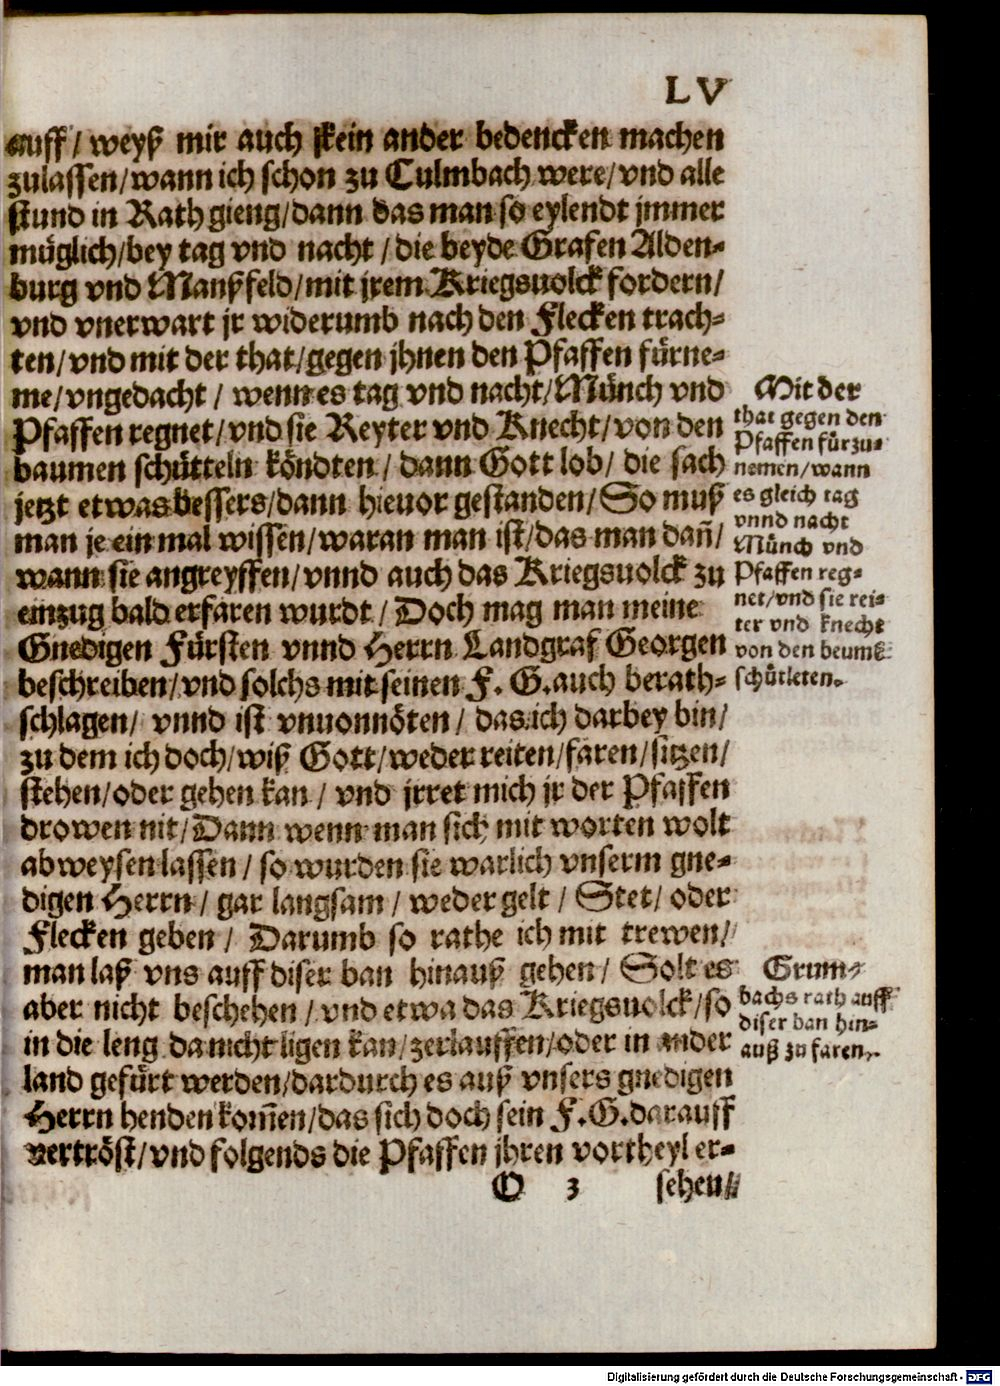 LV
auff/ weyß mir auch kein ander bedencken machen
zulassen/wann ich schon zu Culmbach were/vnd alle
stund in Rath gieng/dann das man so eylendt jmmer
müglich/bey tag vnd nacht/die beyde Grafen Alden-
burg vnd Manßfeld/mit jrem Kriegsuolck fordern/
vnd vnerwart jr widerumb nach den Flecken trach-
ten/vnd mit der that/gegen jhnen den Pfaffen fürne-
me/vngedacht/ wenn es tag vnd nacht/Münch vnd
Pfaffen regnet/vnd sie Reyter vnd Knecht/von den
baumen schütteln köndten/ dann Gott lob/ die sach
jetzt etwas bessers/dann hieuor gestanden/So muß
man je ein mal wissen/waran man ist/das man dañ/
wann sie angreyffen/vnnd auch das Kriegsuolck zu
einzug bald erfaren wurdt/ Doch mag man meine
Gnedigen Fürsten vnnd Herrn Landgraf Georgen
beschreiben/vnd solchs mit seinen F. G. auch berath-
schlagen/ vnnd ist vnuonnöten/ das ich darbey bin/
zu dem ich doch/wiß Gott/weder reiten/faren/sitzen/
stehen/oder gehen kan/ vnd jrret mich jr der Pfaffen
drowen nit/Dann wenn man sich mit worten wolt
abweysen lassen/ so wurden sie warlich vnserm gne-
digen Herrn/ gar langsam/ weder gelt/ Stet/ oder
Flecken geben/ Darumb so rathe ich mit trewen/
man laß vns auff diser ban hinauß gehen/ Solt es
aber nicht beschehen/vnd etwa das Kriegsuolck/so
in die leng da nicht ligen kan/zerlauffen/oder in ander
land gefürt werden/dardurch es auß vnsers gnedigen
Herrn henden kom̃en/das sich doch sein F.G. darauff
vertröst/vnd folgends die Pfaffen jhren vortheyl er-
O 3 sehen/
Mit der
that gegen den
Pfaffen fürzu-
nemen/wann
es gleich tag
vnnd nacht
Münch vnd
Pfaffen reg-
net/vnd sie rei-
ter vnd knecht
von den beuml
schütleten.
Grum-
bachs rath auff
diser ban hin-
auß zu faren.
Digitalisierung gefördert durch die Deutsche Forschungsgemeinschaft - DFG